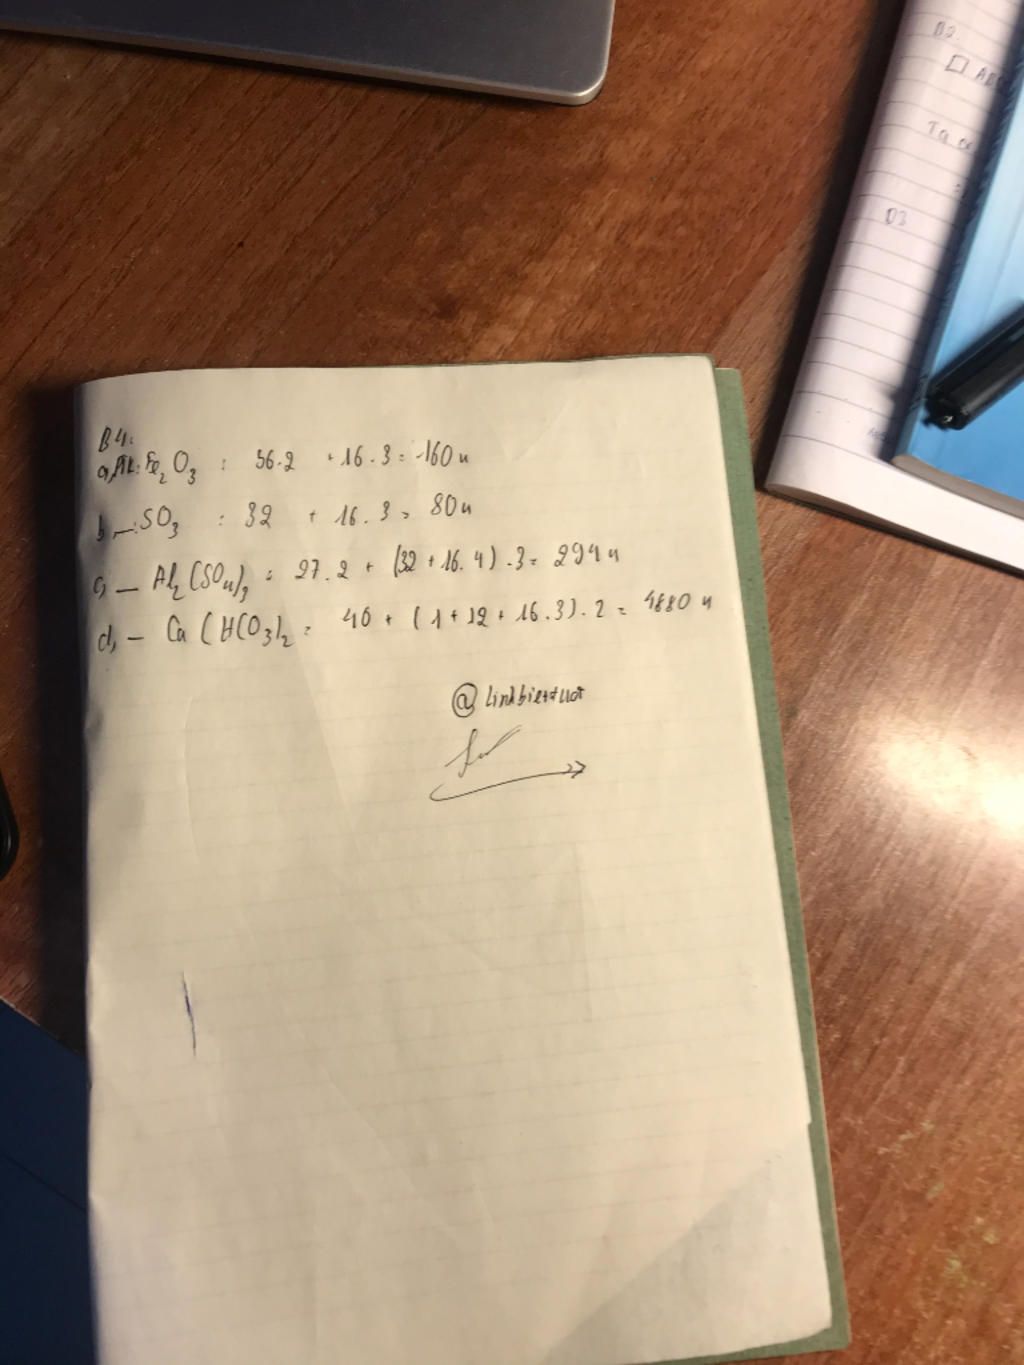 B4:
a, PTK: Fe2O3 : 56.2 + 16.3 = 160 u
b, —: SO3 : 32 + 16.3 = 80 u
c, — Al2(SO4)3 : 27.2 + (32 + 16.4).3 = 294 u
d, — Ca(HCO3)2 = 40 + (1 + 12 + 16.3).2 = 4880 u
@
B2.
□ AB
Ta c
B3